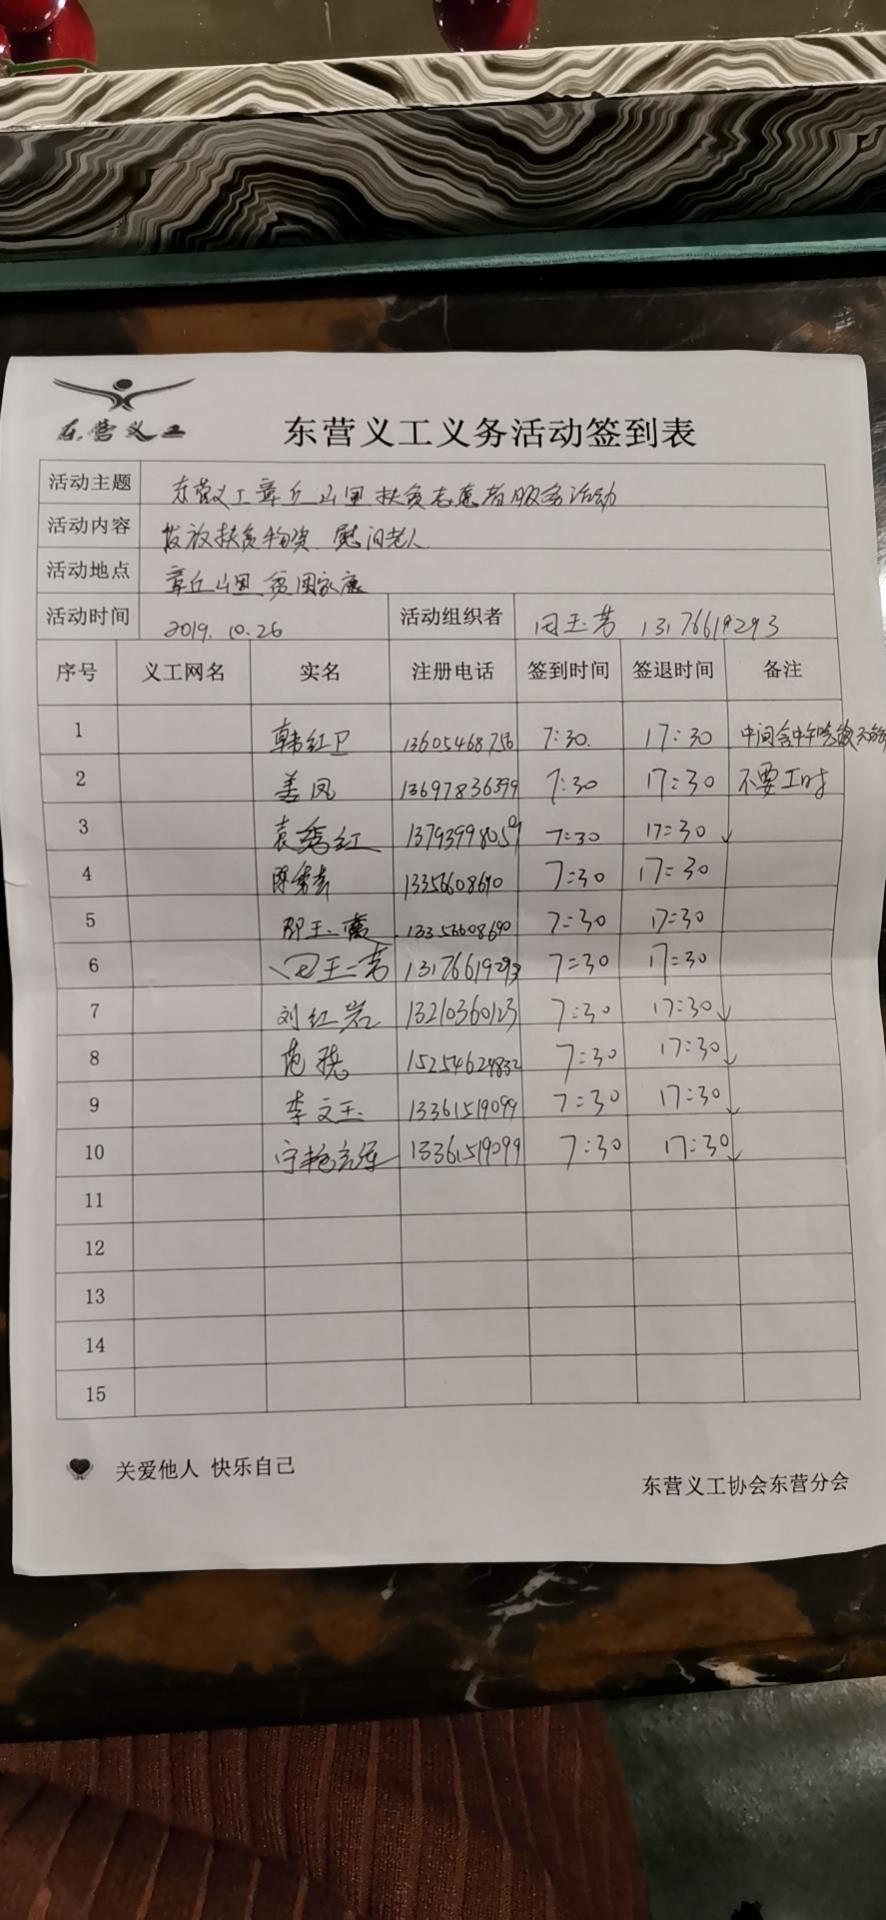 东营义工
东营义工义务活动签到表
活动主题 东营义工章丘山里扶贫志愿者服务活动
活动内容 发放扶贫物资 慰问老人
活动地点 章丘山里
活动时间 2019.10.26 活动组织者 田玉芳 13176619293
序号 义工网名 实名 注册电话 签到时间 签退时间 备注
1 韩红卫 13605468756 7:30. 17:30 中间含中午吃饭
2 姜凤 13697836399 7:30 17:30 不要工时
3 袁秀红 13793998059 7:30 17:30
4 陈 13356608690 7:30 17:30
5 邵玉 13356608690 7:30 17:30
6 田玉芳 13176619293 7:30 17:30
7 刘红岩 13210360123 7:30 17:30
8 范晓 15254624832 7:30 17:30
9 李文玉 13361519099 7:30 17:30
10 宁 13361519099 7:30 17:30
11
12
13
14
15
关爱他人 快乐自己
东营义工协会东营分会